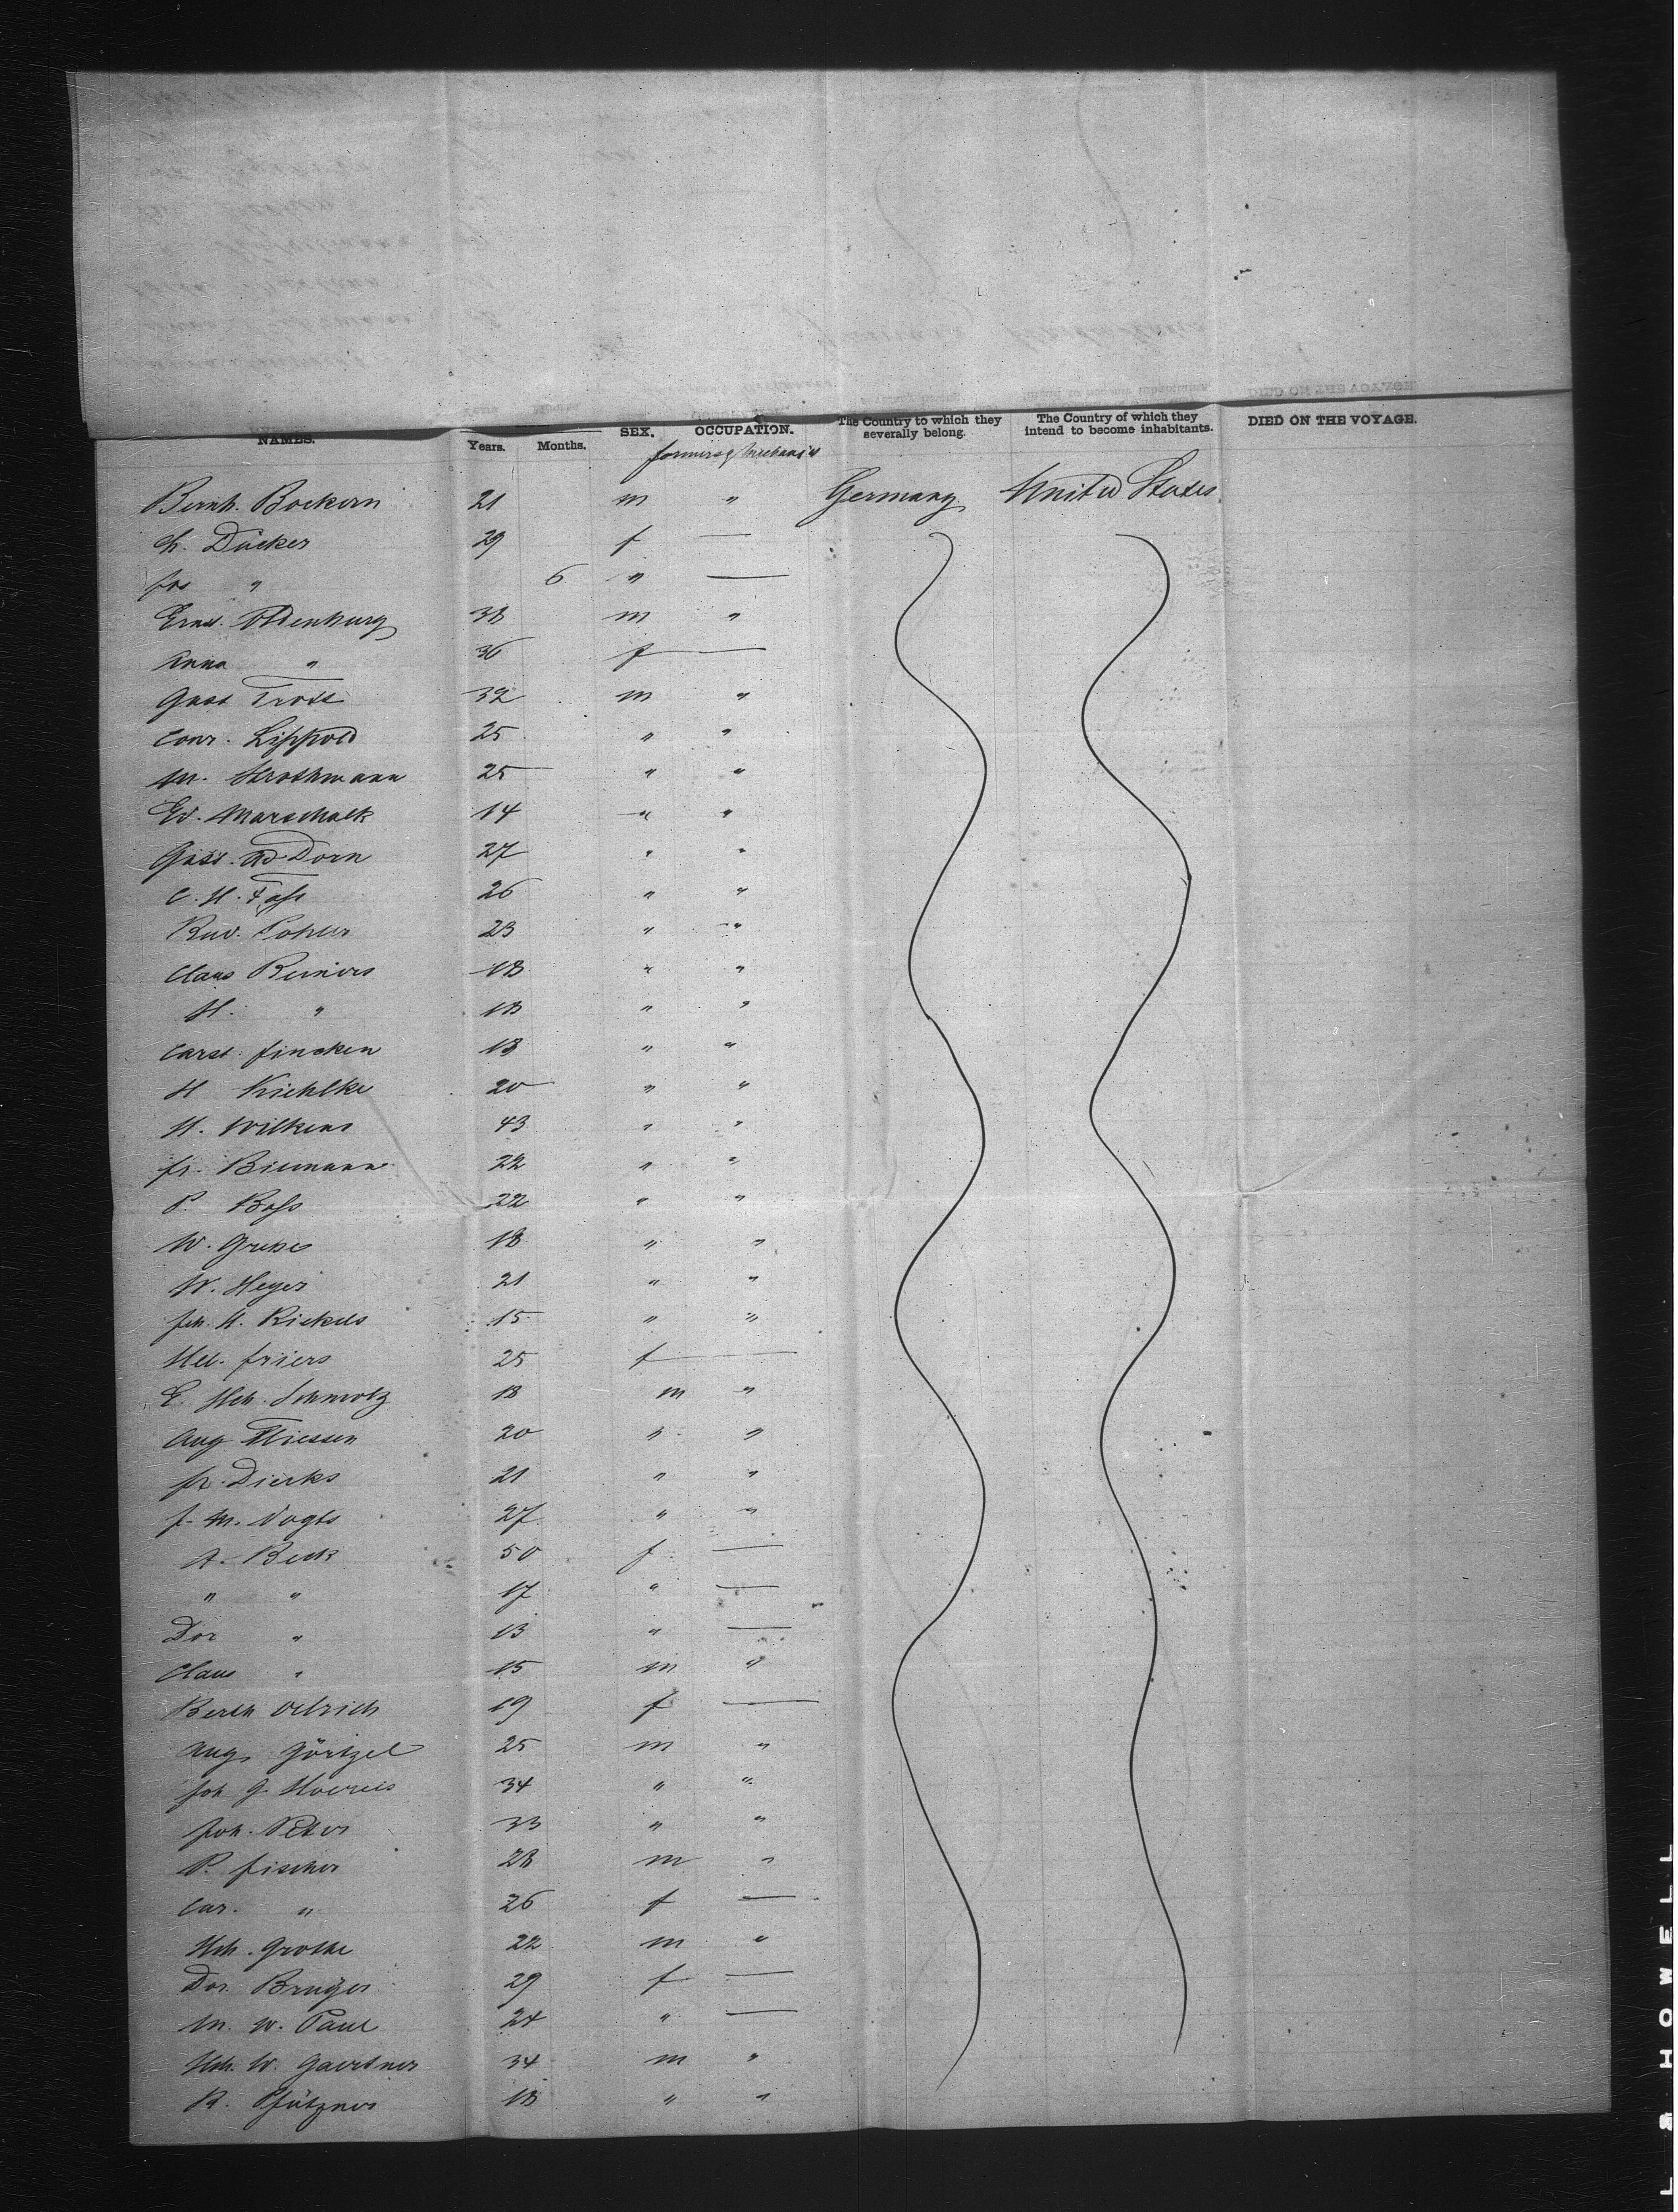 NAMES. Years. Months. SEX. OCCUPATION. The Country to which they severally belong. The Country of which they intend to become inhabitants. DIED ON THE VOYAGE.
farmers & Mechanics
Bernh. Bockern 21 m " Germany United States
Ch. Dücker 29 f —
Jos " 6 " —
Ernst Oldenburg 38 m "
Anna " 36 f —
Gust Trost 32 m "
Conr. Lippold 25 " "
M. Strothmann 25 " "
Ed. Marschalk 14 " "
Gust. Ad Dorn 27 " "
C. H. 26 " "
Rud. Pohler 23 " "
Claus Reiners 18 " "
H. " 18 " "
Carst. Fincken 18 " "
H Kiehlke 20 " "
H. Wilkens 43 " "
Fr. Biemann 22 " "
P. Boss 22 " "
W. 18 " "
W. Heyer 21 " "
Joh. H. Rickels 15 " "
Hel. Friers 25 f —
E. Hch. Schmolz 18 m "
Aug Thiessen 20 " "
Fr. Dierks 21 " "
J. M. Vogts 27 " "
A. Beck 50 f —
" " 17 " —
Dor " 13 " —
Claus " 15 m "
Berth Oelrich 19 f —
Aug. Görtzel 25 m "
Joh G 34 " "
Joh. Peters 33 " "
P. Fischer 28 m "
Car. " 26 f —
Hch. Grothe 22 m "
Dor. Brüger 29 f —
M. W. Paul 24 " —
Hch. W. Gaertner 34 m "
R. Pfützner 18 " "
L & HOWELL